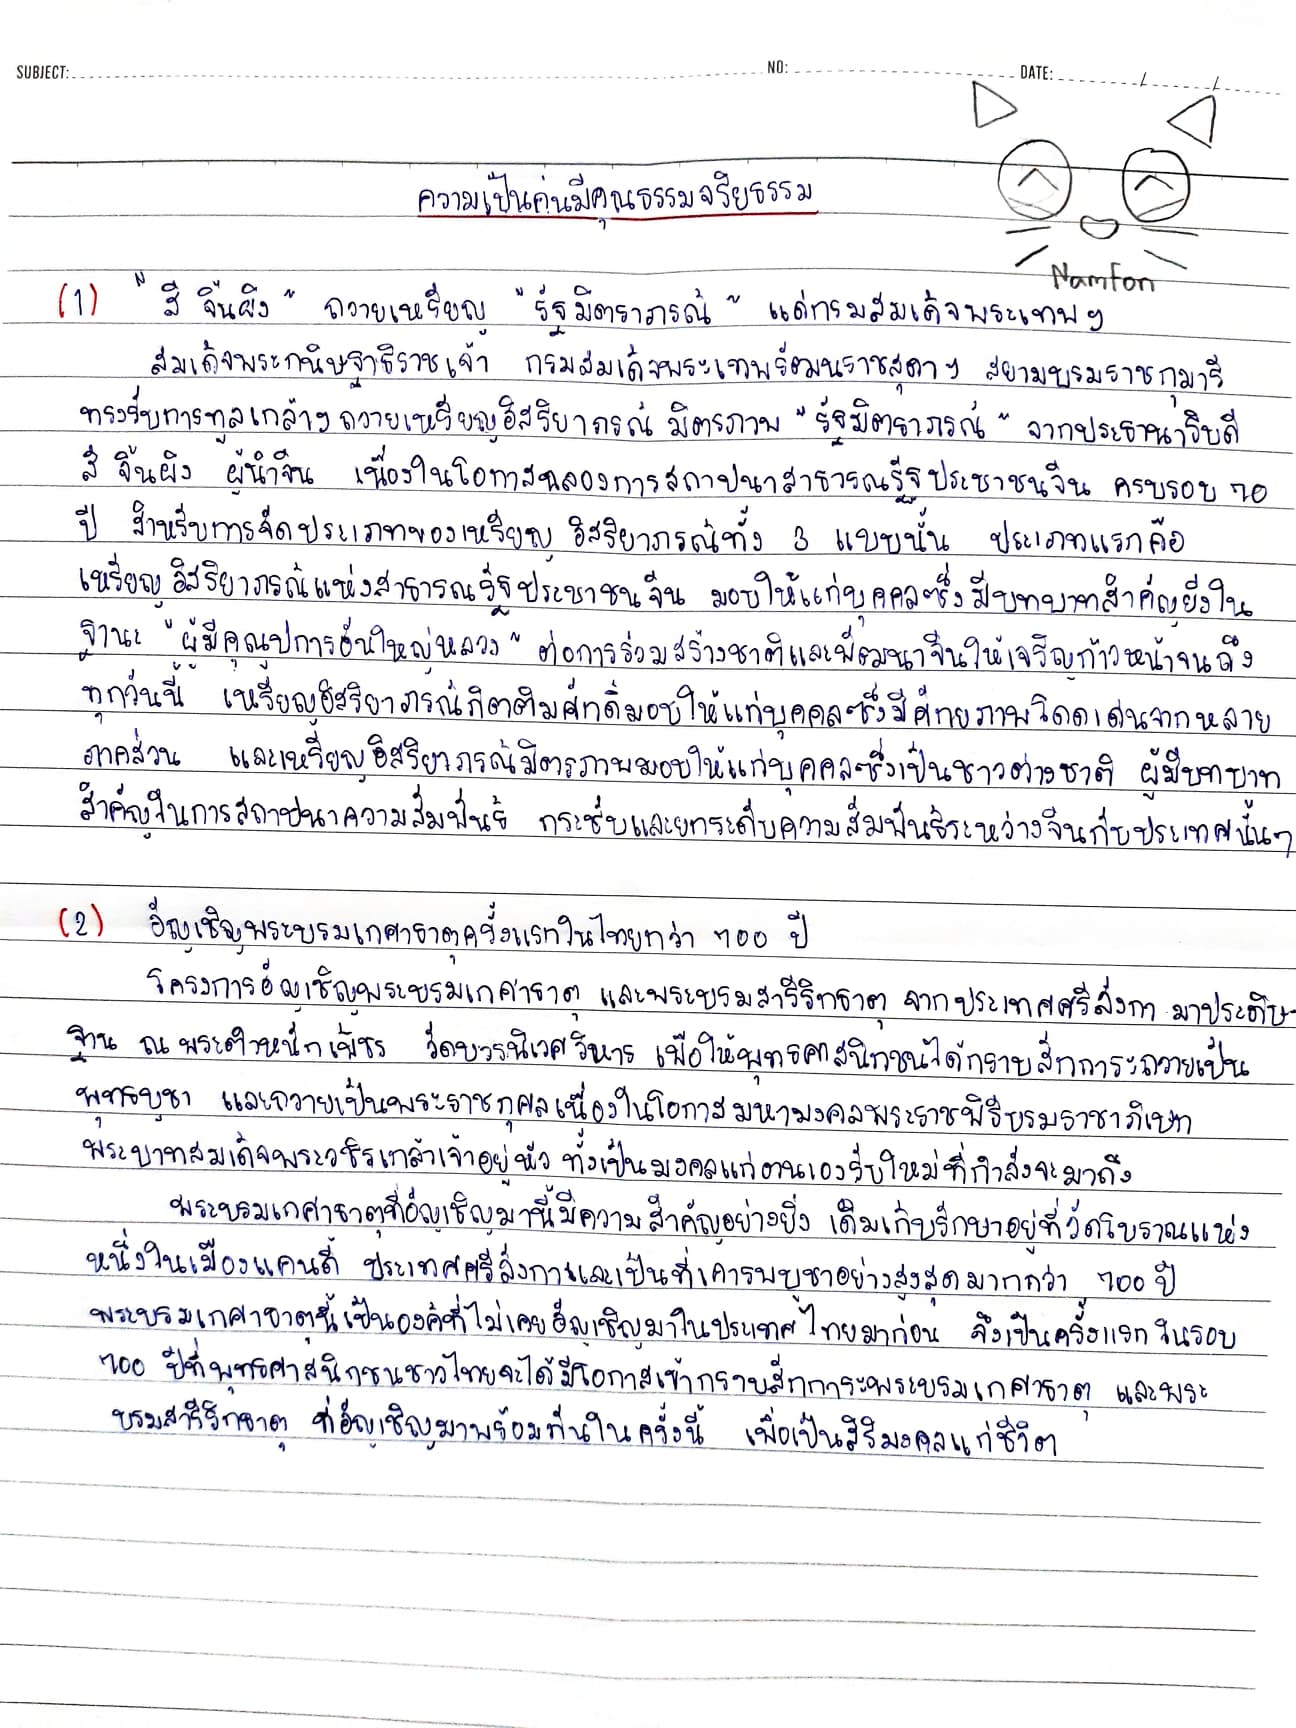 SUBJECT: NO: DATE: / /
ความเป็นคนมีคุณธรรมจริยธรรม
Namfon
(1) " สี จิ้นผิง " ถวายเหรียญ " รัฐมิตราภรณ์ " แด่กรมสมเด็จพระเทพฯ
สมเด็จพระกนิษฐาธิราชเจ้า กรมสมเด็จพระเทพรัตนราชสุดาฯ สยามบรมราชกุมารี
ทรงรับการทูลเกล้าฯ ถวายเหรียญอิสริยาภรณ์ มิตรภาพ " รัฐมิตราภรณ์ " จากประธานาธิบดี
สี จิ้นผิง ผู้นำจีน เนื่องในโอกาสฉลองการสถาปนาสาธารณรัฐประชาชนจีน ครบรอบ 70
ปี สำหรับการจัดประเภทของเหรียญ อิสริยาภรณ์ทั้ง 3 แบบนั้น ประเภทแรกคือ
เหรียญอิสริยาภรณ์แห่งสาธารณรัฐประชาชนจีน มอบให้แก่บุคคลซึ่งมีบทบาทสำคัญยิ่งใน
ฐานะ " ผู้มีคุณูปการอันใหญ่หลวง " ต่อการร่วมสร้างชาติและพัฒนาจีนให้เจริญก้าวหน้าจนถึง
ทุกวันนี้ เหรียญอิสริยาภรณ์กิตติมศักดิ์มอบให้แก่บุคคลซึ่งมีศักยภาพโดดเด่นจากหลาย
ภาคส่วน และเหรียญอิสริยาภรณ์มิตรภาพมอบให้แก่บุคคลซึ่งเป็นชาวต่างชาติ ผู้มีบทบาท
สำคัญในการสถาปนาความสัมพันธ์ กระชับและยกระดับความสัมพันธ์ระหว่างจีนกับประเทศนั้นๆ
(2) อัญเชิญพระบรมเกศาธาตุครั้งแรกในไทยกว่า 700 ปี
โครงการอัญเชิญพระบรมเกศาธาตุ และพระบรมสารีริกธาตุ จากประเทศศรีลังกา มาประดิษ-
ฐาน ณ พระตำหนักเพ็ชร วัดบวรนิเวศวิหาร เพื่อให้พุทธศาสนิกชนได้กราบสักการะถวายเป็น
พุทธบูชา และถวายเป็นพระราชกุศลเนื่องในโอกาสมหามงคลพระราชพิธีบรมราชาภิเษก
พระบาทสมเด็จพระวชิรเกล้าเจ้าอยู่หัว ทั้งเป็นมงคลแก่ตนเองรับใหม่ที่กำลังจะมาถึง
พระบรมเกศาธาตุที่อัญเชิญมานี้มีความสำคัญอย่างยิ่ง เดิมเก็บรักษาอยู่ที่วัดโบราณแห่ง
หนึ่งในเมืองแคนดี้ ประเทศศรีลังกาและเป็นที่เคารพบูชาอย่างสูงสุดมากกว่า 700 ปี
พระบรมเกศาธาตุนี้เป็นองค์ที่ไม่เคยอัญเชิญมาในประเทศไทยมาก่อน จึงเป็นครั้งแรกในรอบ
700 ปีที่พุทธศาสนิกชนชาวไทยจะได้มีโอกาสเข้ากราบสักการะพระบรมเกศาธาตุ และพระ
บรมสารีริกธาตุ ที่อัญเชิญมาพร้อมกันในครั้งนี้ เพื่อเป็นสิริมงคลแก่ชีวิต